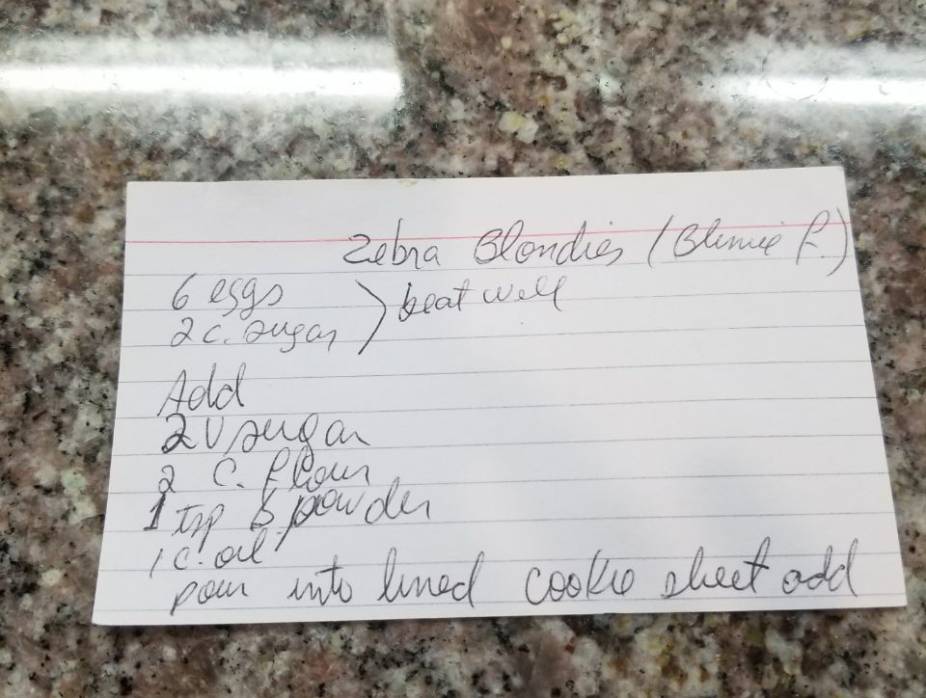 Zebra Blondies (Blimie F.)
6 eggs
2 c. sugar } beat well
Add
2 V sugar
2 C. flour
1 tsp b. powder
1 c. oil
pour into lined cookie sheet add